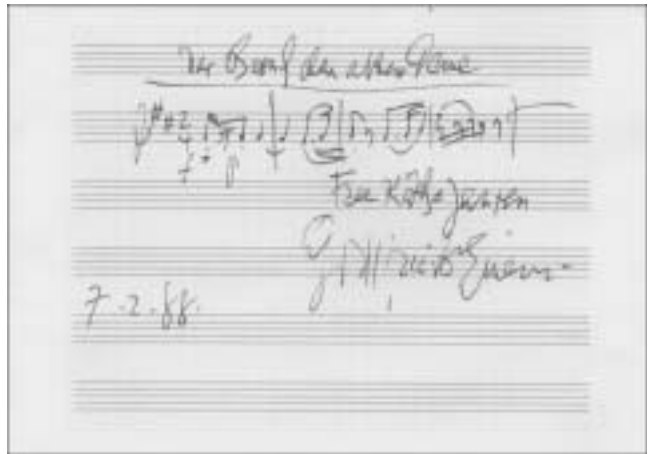 Der Besuch der alten Dame
f p
Frau Käthe Jansen
Gottfried Einem
7.2.88.